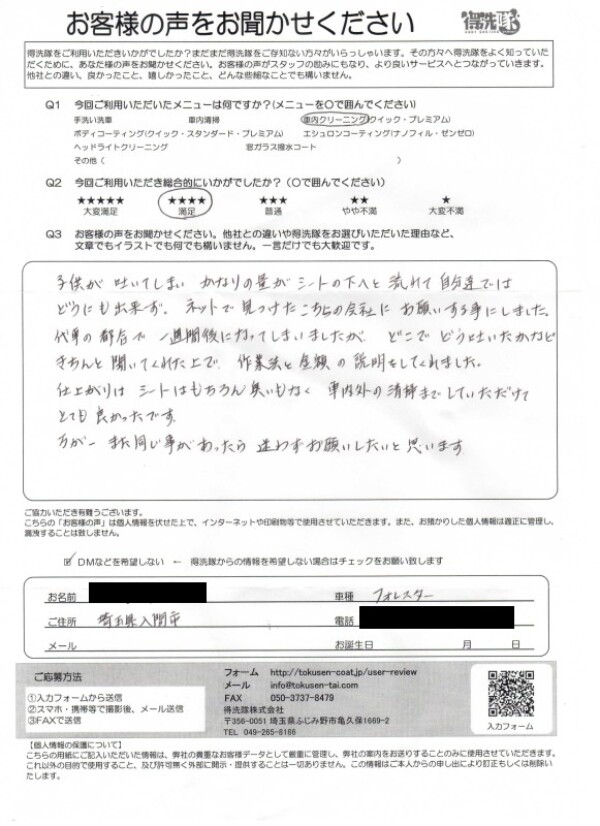 お客様の声をお聞かせください
得洗隊
得洗隊をご利用いただきいかがでしたか？まだまだ得洗隊をご存知ない方々がいらっしゃいます。その方々へ得洗隊をよく知っていた
だくために、あなた様の声をお聞かせください。お客様の声がスタッフの励みにもなり、より良いサービスへとつながっていきます。
他社との違い、良かったこと、嬉しかったこと、どんな些細なことでも構いません。
Q1 今回ご利用いただいたメニューは何ですか？(メニューを○で囲んでください)
手洗い洗車 車内清掃 車内クリーニング(クイック・プレミアム)
ボディコーティング(クイック・スタンダード・プレミアム) エシュロンコーティング(ナノフィル・ゼンゼロ)
ヘッドライトクリーニング 窓ガラス撥水コート
その他( )
Q2 今回ご利用いただき総合的にいかがでしたか？(○で囲んでください)
★★★★★ ★★★★ ★★★ ★★ ★
大変満足 満足 普通 やや不満 大変不満
Q3 お客様の声をお聞かせください。他社との違いや得洗隊をお選びいただいた理由など、
文章でもイラストでも何でも構いません。一言だけでも大歓迎です。
子供が 吐いてしまい かなりの量が シートの下へと 流れて 自分達では
どうにも出来ず、ネットで 見つけた こちらの会社に お願いする事にしました。
代車の都合で 一週間後になってしまいましたが、どこで どう吐いたかなど
きちんと聞いてくれた上で、作業法と金額の説明をしてくれました。
仕上がりは シートはもちろん臭いもなく 車内外の清掃までしていただけて
とても良かったです。
万が一 また同じ事があったら 迷わずお願いしたいと思います
ご協力いただき有難うございます。
こちらの「お客様の声」は個人情報を伏せた上で、インターネットや印刷物等で使用させていただきます。また、お預かりした個人情報は適正に管理し、
漏洩することは致しません。
☑ DMなどを希望しない ← 得洗隊からの情報を希望しない場合はチェックをお願い致します
お名前 車種 フォレスター
ご住所 埼玉県入間市 電話
メール お誕生日 月 日
ご応募方法
①入力フォームから送信
②スマホ・携帯等で撮影後、メール送信
③FAXで送信
フォーム http://tokusen-coat.jp/user-review
メール info@tokusen-tai.com
FAX 050-3737-8479
得洗隊株式会社
〒356-0051 埼玉県ふじみ野市亀久保1669-2
TEL 049-265-8186
入力フォーム
【個人情報の保護について】
こちらの用紙にご記入いただいた情報は、弊社の貴重なお客様データとして厳重に管理し、弊社の案内をお送りすることのみに使用させていただきます。
これ以外の目的で使用すること、及び許可無く外部に開示・提供することは一切ありません。この情報はご本人からの申し出により訂正もしくは削除い
たします。